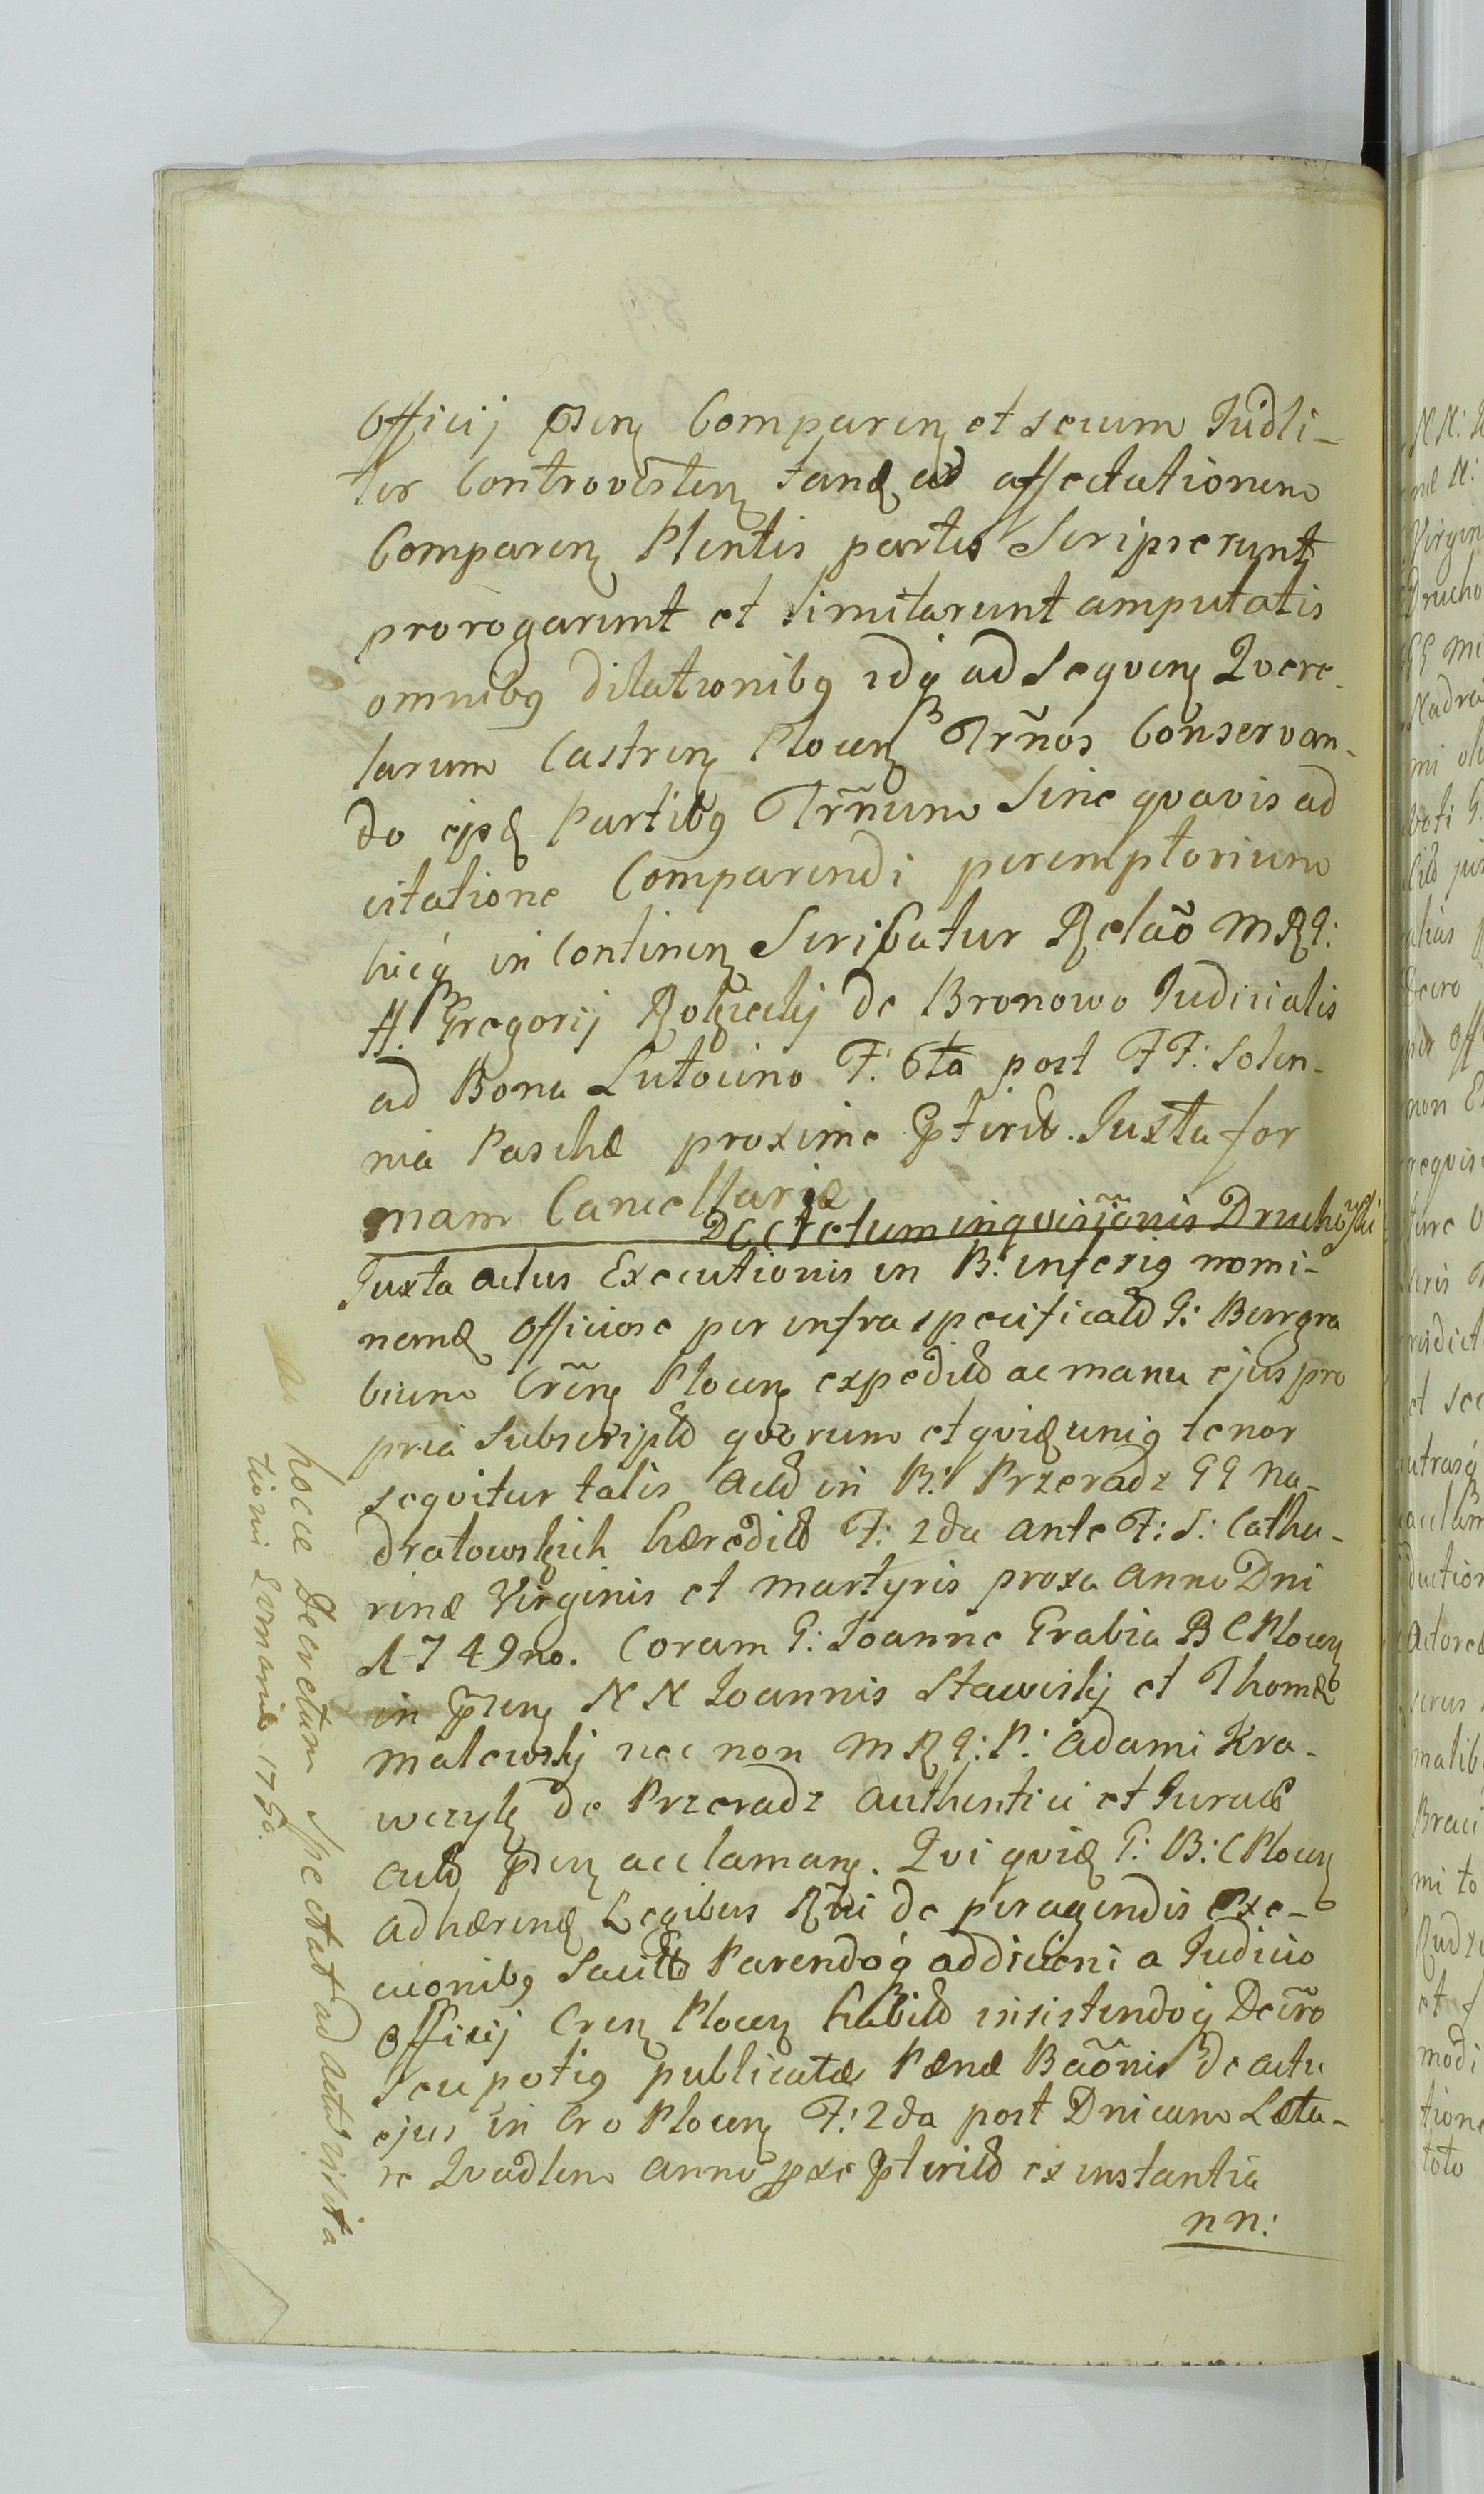 Officij pnsen Comparen et secum Judli-
ter Controverten tanq ad affectationem
Comparen Plentis partis Scripserunt
prorogarunt et limitarunt amputatis
omnibq dilationibq idq ad seqven Qvere-
larum Castren Plocen Trños Conservan-
do ejsq Partibq Trñum Sine qvavis ad
citatione Comparendi peremptorium
hicq in Continen Scribatur Relaõ MRG:
H. Gregorij Rolnicki de Bronowo Judicialis
ad Bona Lutocino F: 6ta post FF: Solen-
nia Paschæ proxime pterit. Juxta for
mam Cancellariæ
Decretum inqvisiõnis Druchowski
Juxta actus Executionis in B: inferiq nomi-
nanq officiose per infra specificatd G: Burgra
bium Cren Plocen expeditd ac manu ejus pro
pria subscriptd qvorum et qviq uniq tenor
seqvitur talis Actd in B: Przeradz GG Na-
dratowskich hæreditd F: 2da ante F: S: Catha-
rinæ Virginis et Martyris proxa Anno Dni
1749no. Coram G: Joanne Grabia B C Plocen
in pnsen NN Joannis Stawiski et Thomæ
Malewski nec non MRG: P: Adami Kra-
wczyk de Przeradz authentici et Jurati
actd pnsen acclaman. Qvi qviq G: B: C Plocen
adhærenq Legibus Rni de peragendis Exe-
cuonibq Sacitd Parendoq addicõni a Judicio
Officij Cren Plocen habitd insistendoq Decro
seu potiq publicatæ Pænæ Baõnis de actu
ejus in Cro Plocen F: 2da post Dnicam Læta-
re Qvadlem anno pxe pteritd ex instantia
nn:
hocce Decretum Spectat ad Actu Visita
tionis Normano 1750.